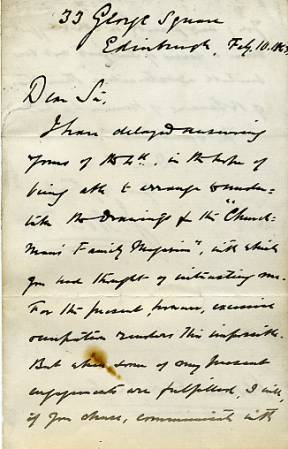 33 George Square
Edinburgh, Feby 10. 1863
Dear Sir,
I have delayed answering
yours of the 4th, in the hope of
being able to arrange to under-
take the Drawings for the "Church-
man's Family Magazine", with which
you had thought of intrusting me.
For the present, however, excessive
occupation renders this impossible.
But when some of my present
engagements are fulfilled, I will,
if you choose, communicate with